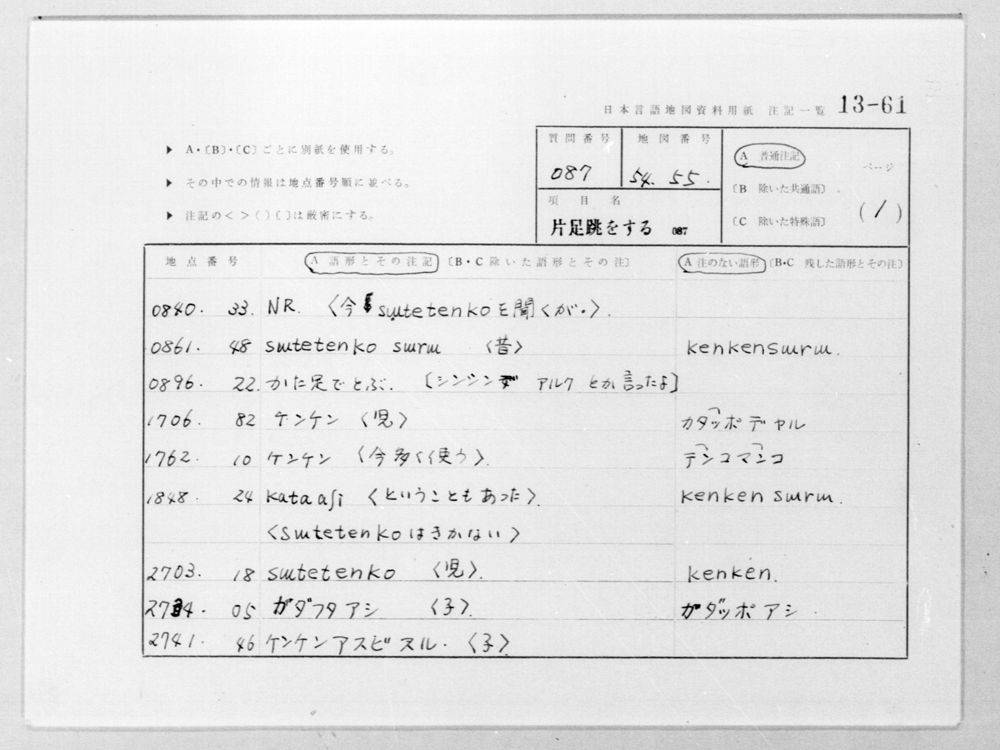 日本言語地図資料用紙 注記一覧 13-61
▶ A・〔B〕・〔C〕ごとに別紙を使用する。
▶ その中での情報は地点番号順に並べる。
▶ 注記の< >( )〔 〕は厳密にする。
質問番号 地図番号
087 54. 55.
項目名
片足跳をする 087
A 普通注記
〔B 除いた共通語〕
〔C 除いた特殊語〕
ページ
(1)
地点番号 A 語形とその注記 〔B・C除いた語形とその注〕 A 注のない語形 〔B・C 残した語形とその注〕
0840. 33. NR. 〈今 sɯtetenkoを聞くが.〉.
0861. 48 sɯtetenko sɯrɯ 〈昔〉 kenkensɯrɯ.
0896. 22. かた足でとぶ. 〔シンシンデ アルク とか言ったよ〕
1706. 82 ケンケン 〈児〉 カタッポデヤル
1762. 10 ケンケン 〈今多く使う〉. テンコマンコ
1848. 24 kataaʃi 〈ということもあった〉. kenken sɯrɯ.
〈sɯtetenkoはきかない〉
2703. 18 sɯtetenko 〈児〉. kenken.
2734. 05 ガダフタアシ 〈子〉. ガダッポアシ.
2741. 46 ケンケンアスビスル. 〈子〉.